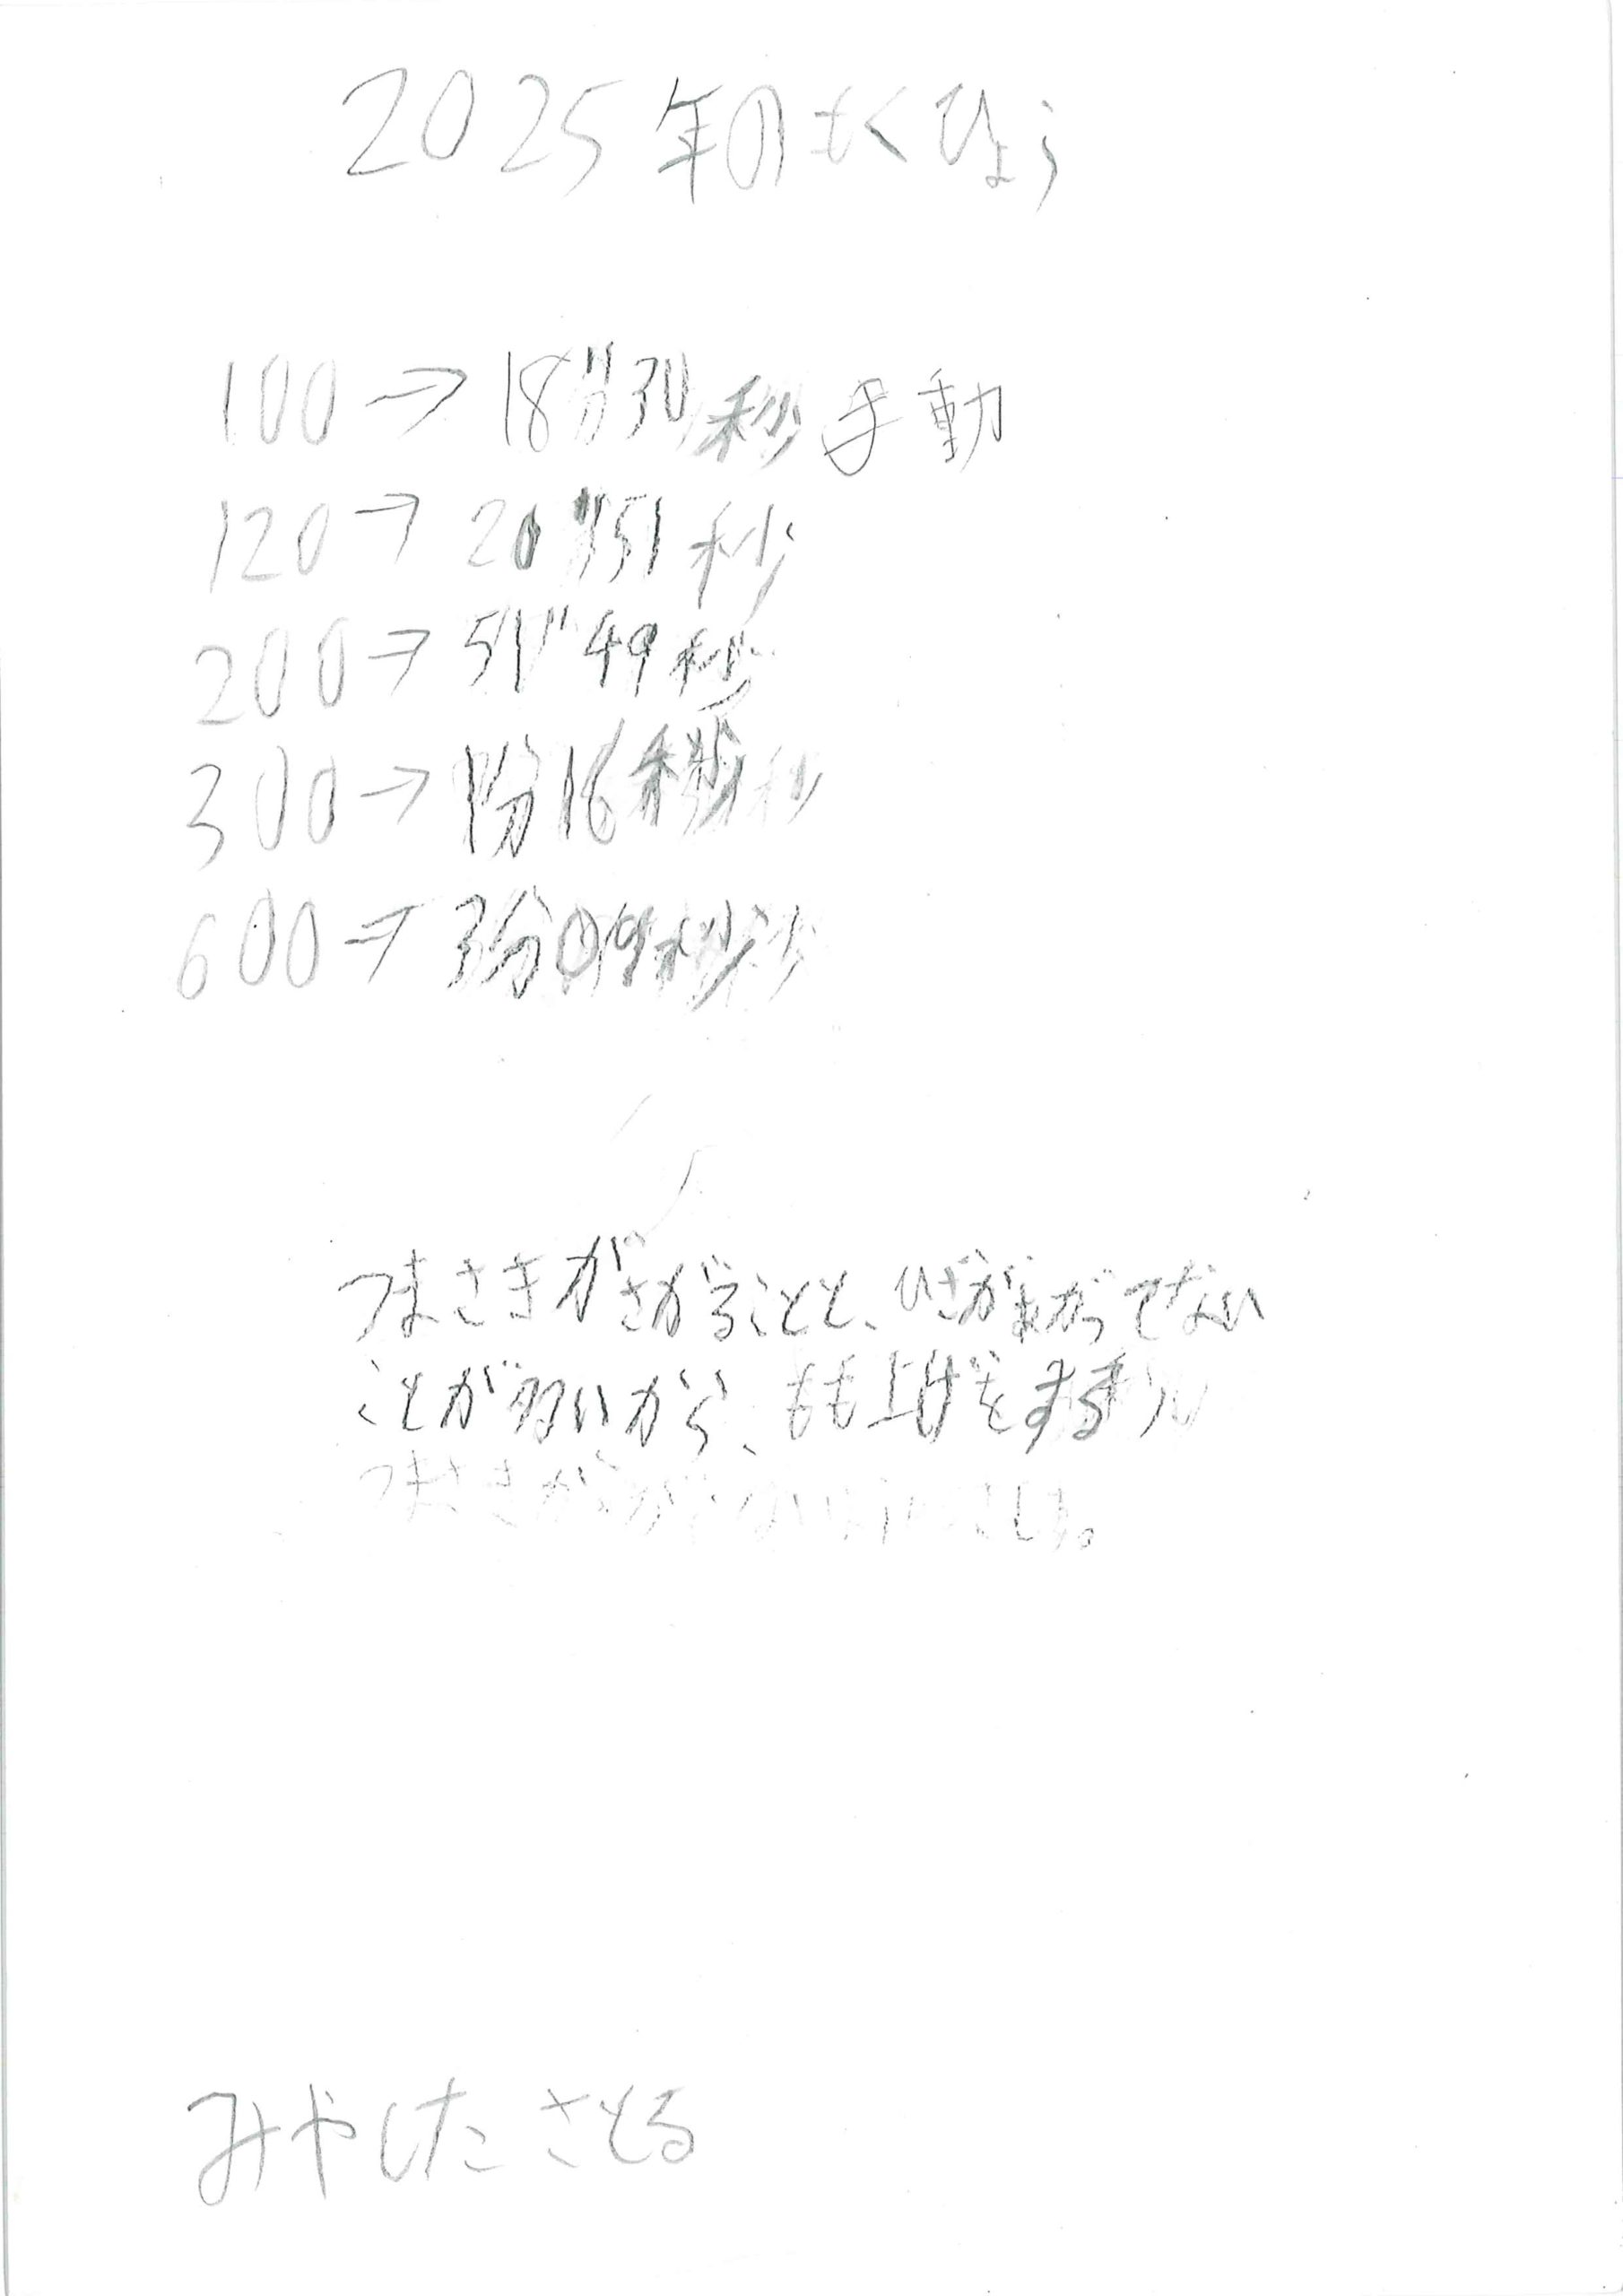 2025年のもくひょう
100→18"30秒手動
120→20"51秒
200→51"49秒
300→1分16秒
600→3分09秒
つまさきがさがることと、ひざがまがってない
ことが多いから、もも上げをする
つまさきが
みやしたさとる